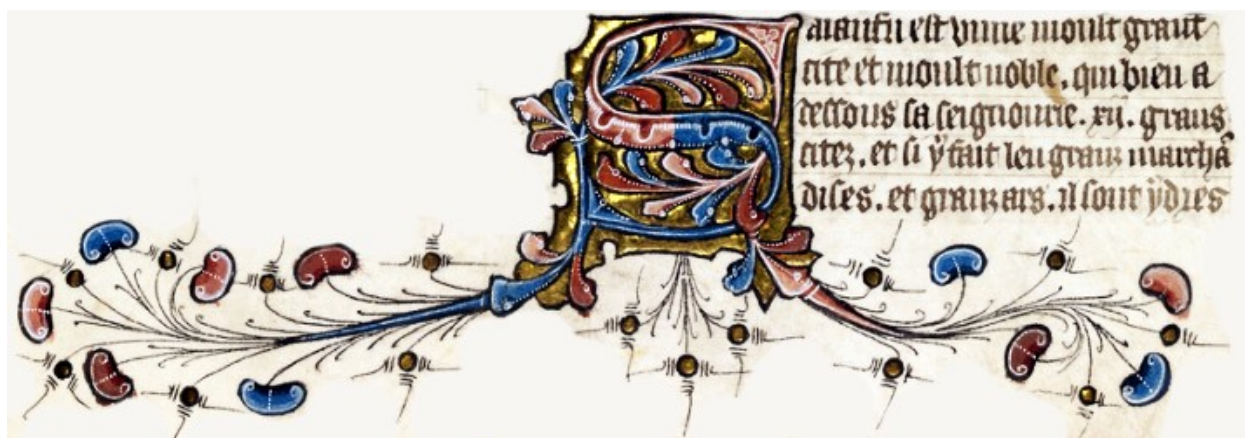 Saianfu est vnne moult grant
cite et moult noble. qui bien a
dessous sa seignourie. xij. grans
citez. et si ÿ fait len granz marchā
dises. et granz ars. il sont ÿdres